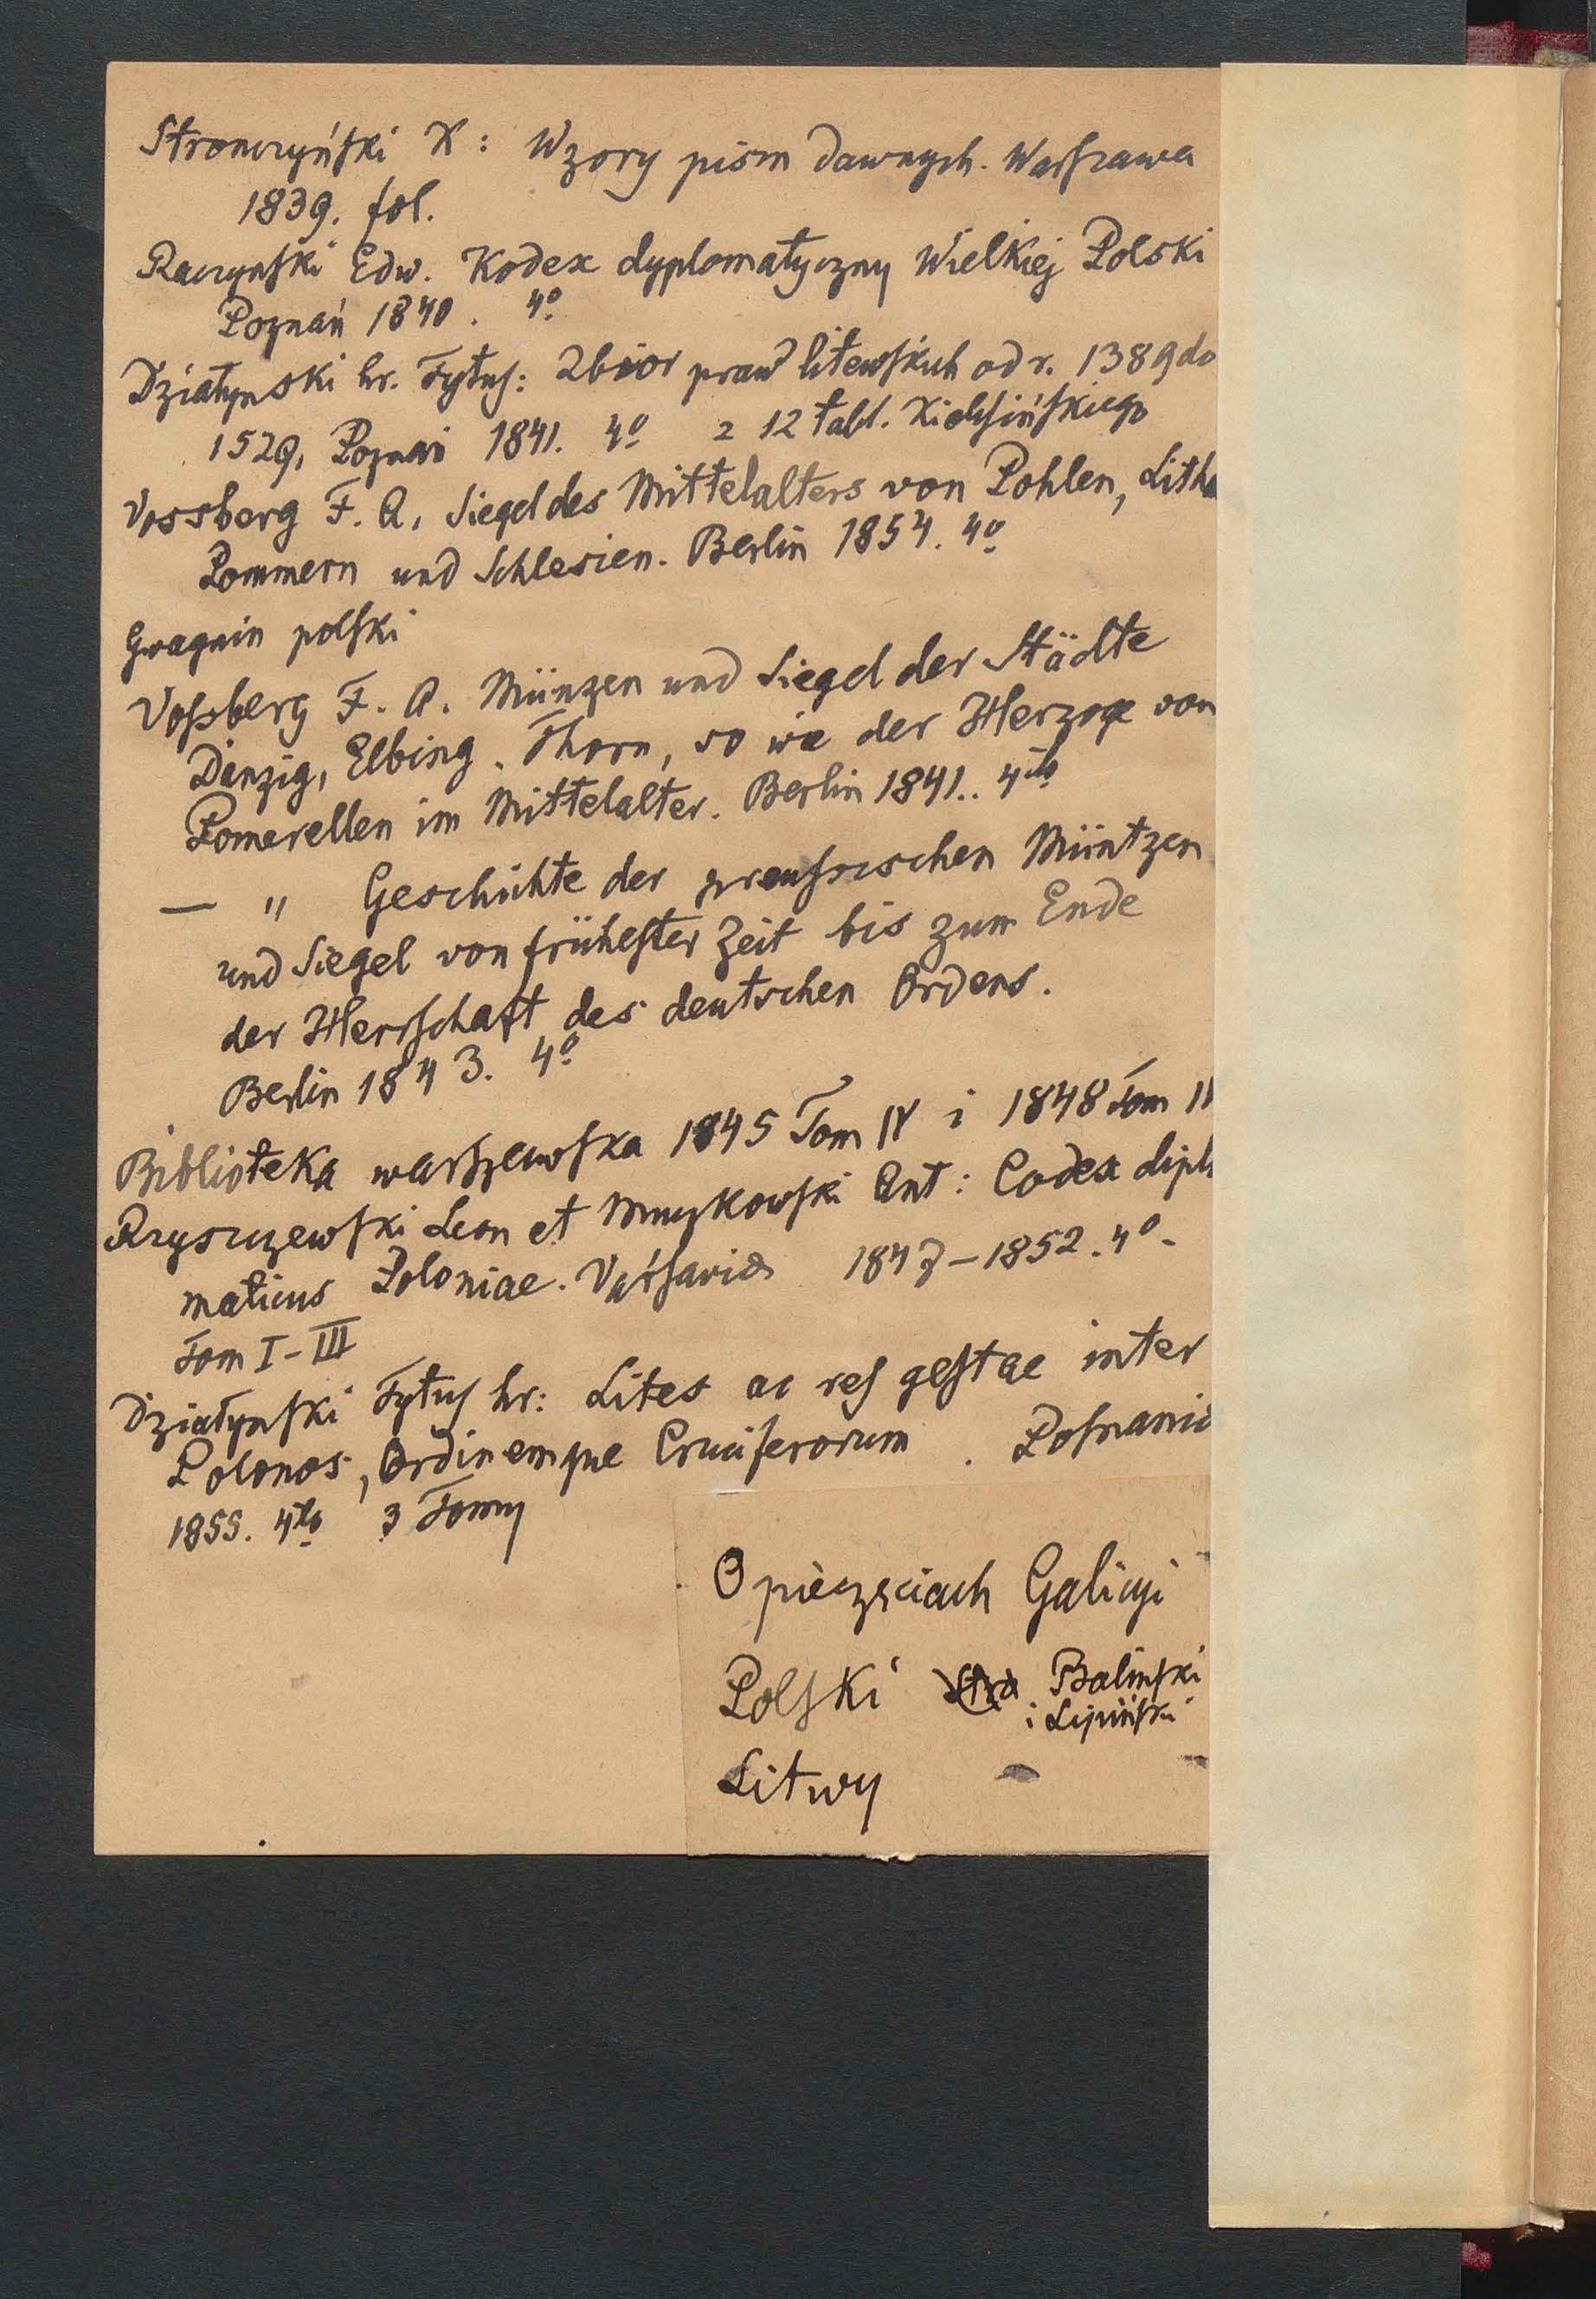 Stronczyński K: Wzory pism dawnych. Warszawa
1839. fol.
Raczynski Edw. Kodex dyplomatyczny Wielkiej Polski
Poznań 1840. 4o
Działynski hr. Tytus: Zbior praw litewskich od r. 1389 do
1529, Poznań 1841. 4o z 12 tabl. Kielisińskiego
Vossberg F. A. Siegel des Mittelalters von Pohlen, Lith
Pommern und Schlesien. Berlin 1854. 4o
Gwagnin polski
Voßberg F. A. Münzen und Siegel der Städte
Danzig, Elbing, Thorn, so wie der Herzoge von
Pomerellen im Mittelalter. Berlin 1841. 4to
— " Geschichte der preussischen Müntzen
und Siegel von frühester Zeit bis zum Ende
der Herrschaft des deutschen Ordens.
Berlin 1843. 4o
Biblioteka warszawska 1845 Tom IV i 1848 Tom
Rzyszczewski Leon et Muczkowski Ant: Codex diplo
maticus Poloniae. Varsaviae 1847-1852. 4o.
Tom I-III
Działynski Tytus hr: Lites ac res gestae inter
Polonos, Ordinemque Cruciferorum. Posnaniae
1855. 4to 3 Tomy
O pieczęciach Galicyi
Polski Balinski
i Lipiński
Litwy